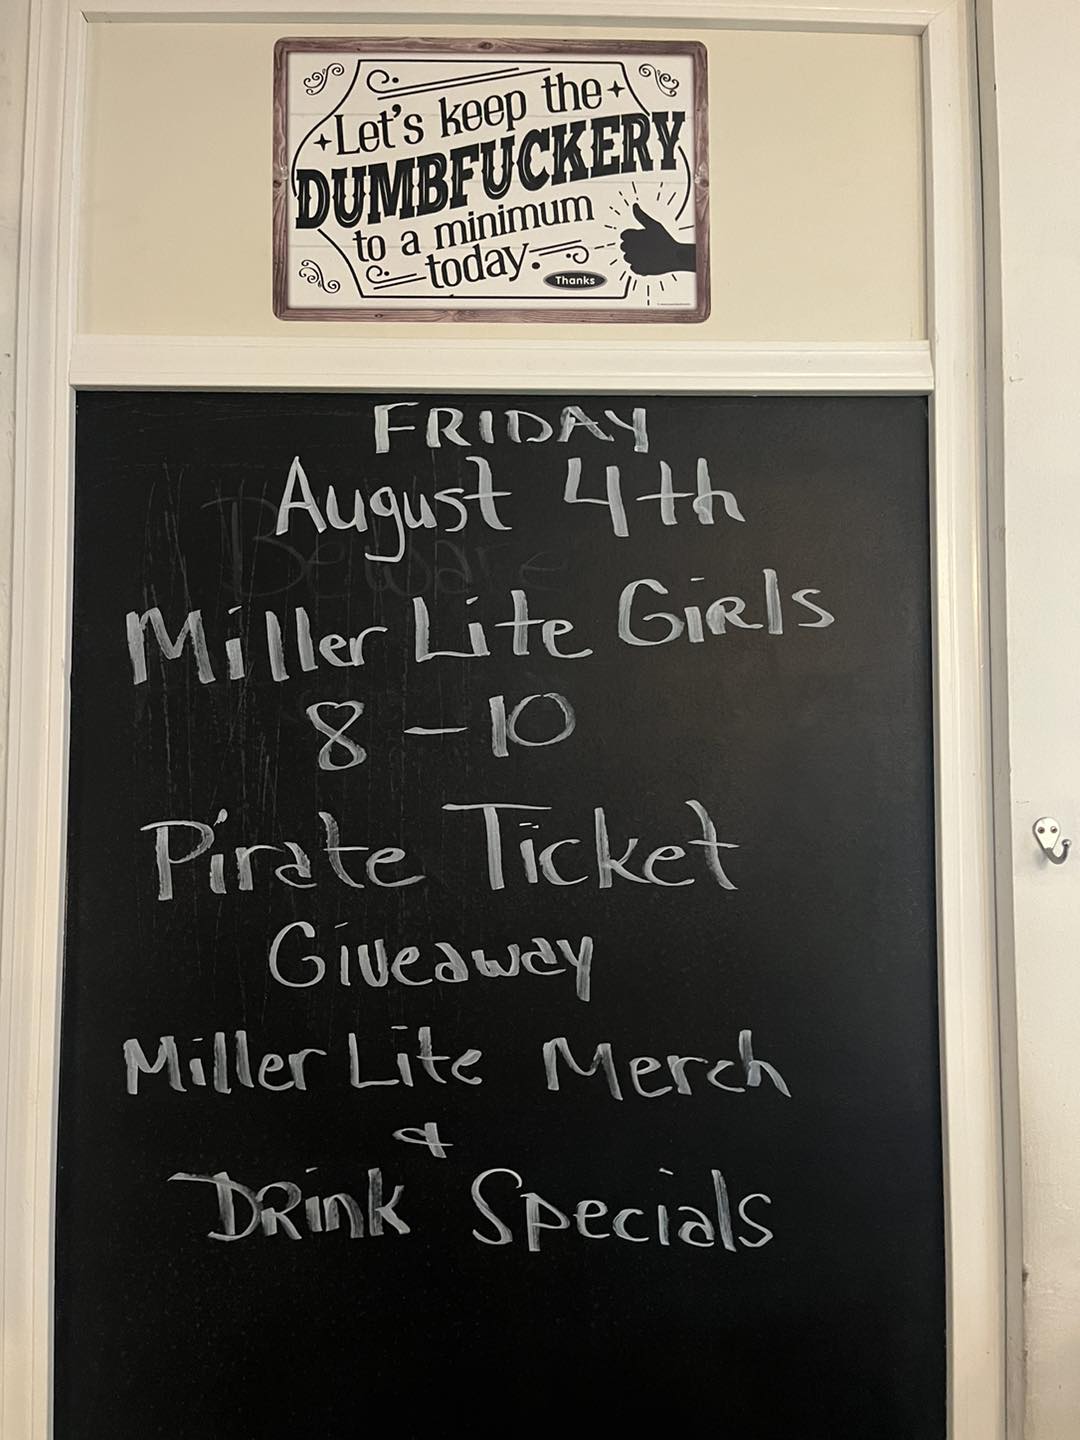 Let's keep the
DUMBFUCKERY
to a minimum
today.
Thanks
FRIDAY
August 4th
Beware
Miller Lite Girls
8-10
Pirate Ticket
Giveaway
Miller Lite Merch
&
DRink Specials